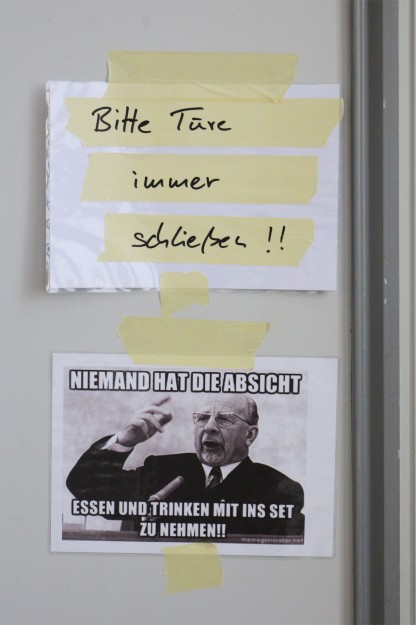 Bitte Türe
immer
schließen !!
NIEMAND HAT DIE ABSICHT
ESSEN UND TRINKEN MIT INS SET
ZU NEHMEN!!
memegenerator.net